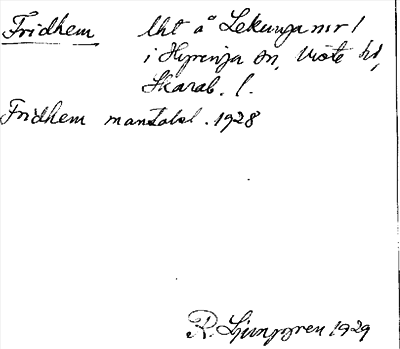 Fridhem lht å Lekunga nr 1
i Hyringa sn, Viste hd,
Skarab. l.
Fridhem mantalsl. 1928
R. Ljunggren 1929